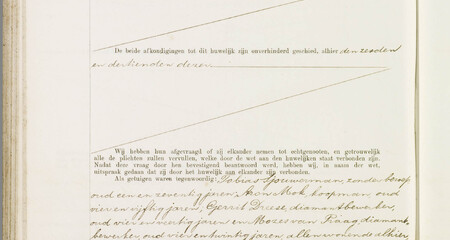 De beide afkondigingen tot dit huwelijk zijn onverhinderd geschied, alhier den zesden
en dertienden dezer.
Wij hebben hun afgevraagd of zij elkander nemen tot echtgenooten, en getrouwelijk
alle de plichten zullen vervullen, welke door de wet aan den huwelijken staat verbonden zijn.
Nadat deze vraag door hen bevestigend beantwoord werd, hebben wij, in naam der wet,
uitspraak gedaan dat zij door het huwelijk aan elkander zijn verbonden.
Als getuigen waren tegenwoordig: Tobias zonder beroep
oud een en zeventig jaren, Aron Mok, koopman, oud
vier en vijftig jaren, Gerrit Druse, diamantbewerker,
oud vier en veertig jaren en Mozes van Praag, diamant-
bewerker, oud vier en twintig jaren, allen wonende alhier,